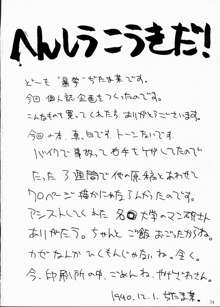 へんしうこうきだ！
どーも"暴学"ぢたま某です。
今回 個人誌企画をつくったのです。
こんなもので買ってくれた方ありがとうございます。
今回の本、真っ白でトーンないです
バイクで事故って右手をケガしてたので
たった3週間で他の原稿とあわせて
70ページ描かにゃならんかったのです。
アシストしてくれた 名〇大学のマン研さん
ありがとう。ちゃんと ご飯 おごったからね。
カゼなんかひくもんじゃないね、全く。
今、印刷所の中、ごめんね、
1990.12.1. ぢたま某